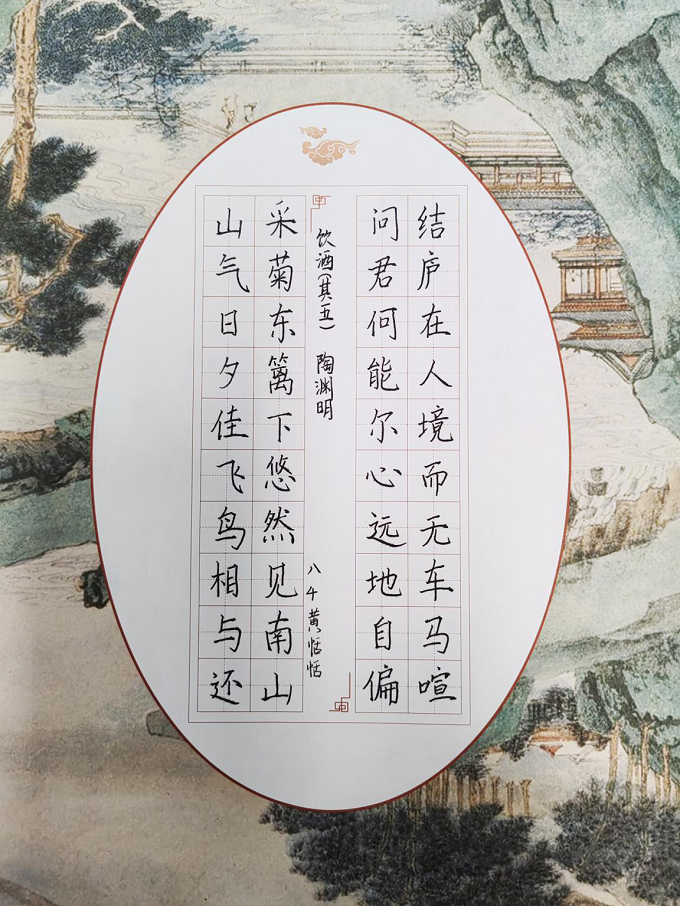 结庐在人境而无车马喧
问君何能尔心远地自偏
饮酒(其五) 陶渊明
八4 黄恬恬
采菊东篱下悠然见南山
山气日夕佳飞鸟相与还